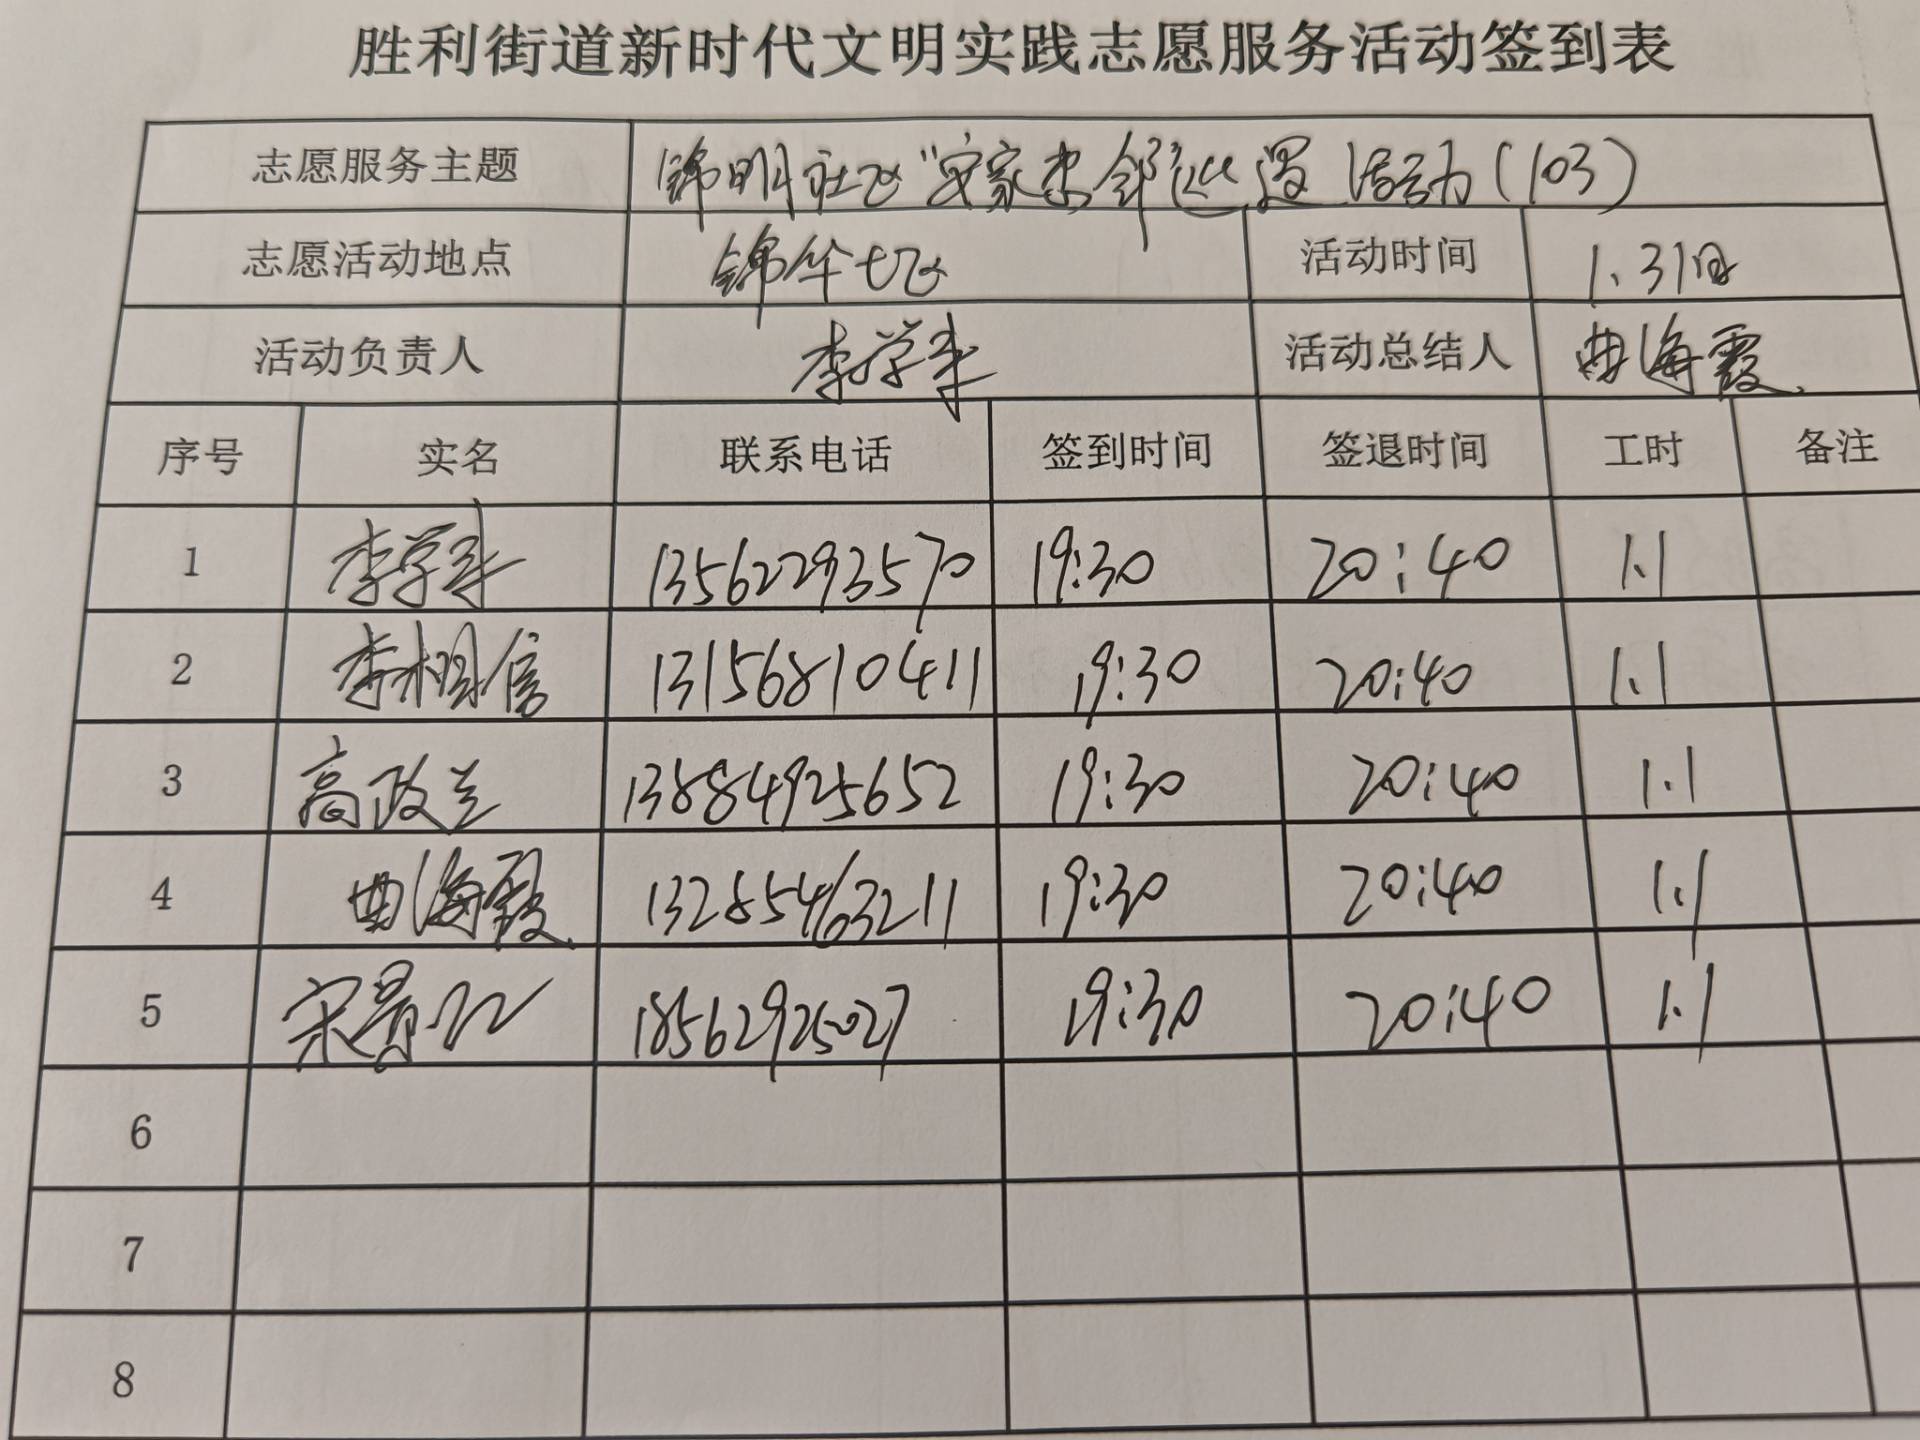 胜利街道新时代文明实践志愿服务活动签到表
志愿服务主题 锦明社区“安家杰邻巡逻 活动(103)
志愿活动地点 锦华七区 活动时间 1.31日
活动负责人 李学 活动总结人 曲海霞
序号 实名 联系电话 签到时间 签退时间 工时 备注
1 李学 13562293570 19:30 20:40 1.1
2 李相信 13156810411 19:30 20:40 1.1
3 高政兰 13884925652 19:30 20:40 1.1
4 曲海霞 13285463211 19:30 20:40 1.1
5 宋景 18562925027 19:30 20:40 1.1
6
7
8